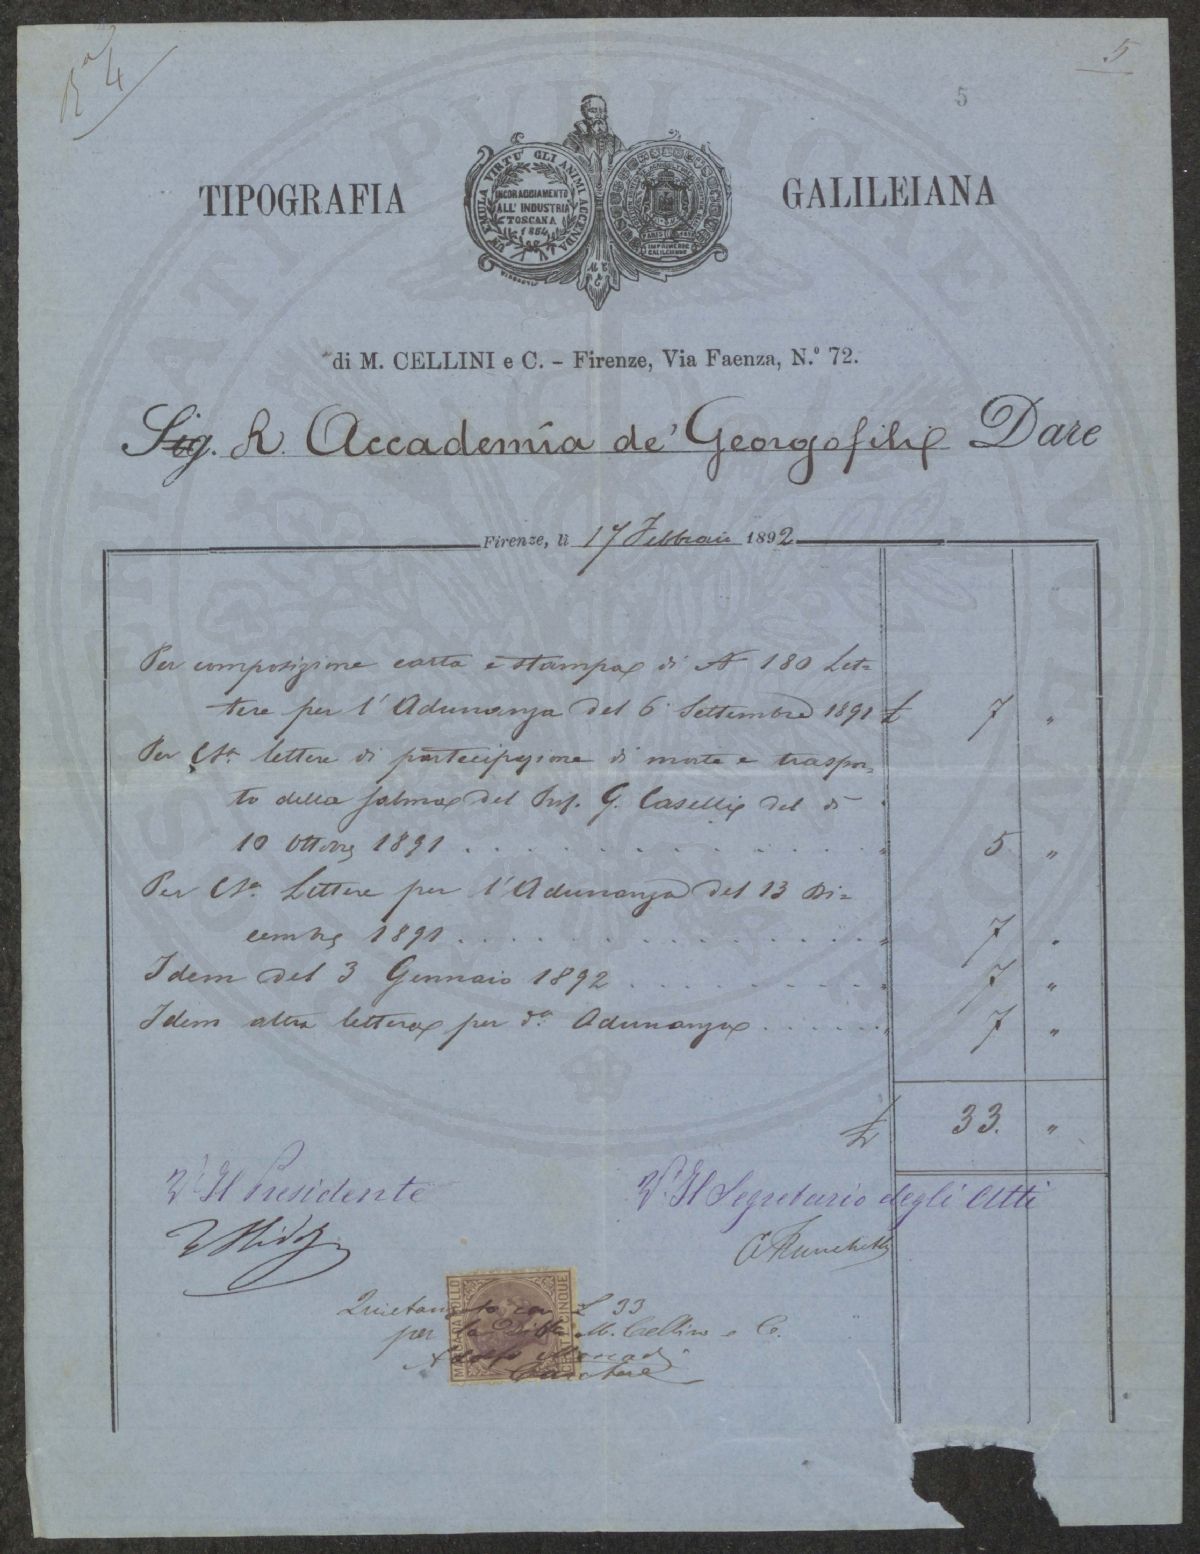 R.a 4
5
5
TIPOGRAFIA
UT EMULA VIRTU' GLI ANIMI ACCENDA
INCORAGGIAMENTO
ALL' INDUSTRIA
TOSCANA
1854
GALILEIANA
di M. CELLINI e C. - Firenze, Via Faenza, N.° 72.
Sig. R. Accademia de' Georgofili Dare
Firenze, lì 17 Febbraio 1892
Per composizione carta e stampa di N 180 Let=
tere per l'Adunanza del 6 Settembre 1891 £ 7 "
Per lettere di partecipazione di morte e traspor=
to della salma del Prof. G. Caselli del dì
10 Ottobre 1891 . . . . . . . . . . . . . . . " 5 "
Per Lettere per l'Adunanza del 13 Di=
cembre 1891 . . . . . . . . . . . . . . . " 7 "
Idem del 3 Gennaio 1892 . . . . . . . . . " 7 "
Idem altra lettera per d.a Adunanza . . . . . . " 7 "
£ 33. "
V. Il Presidente
V. Il Segretario degli Atti
MARCA DA BOLLO
CENT. CINQUE
Quietanzato con £ 33
per la Ditta M. Cellini e C.
Adolfo